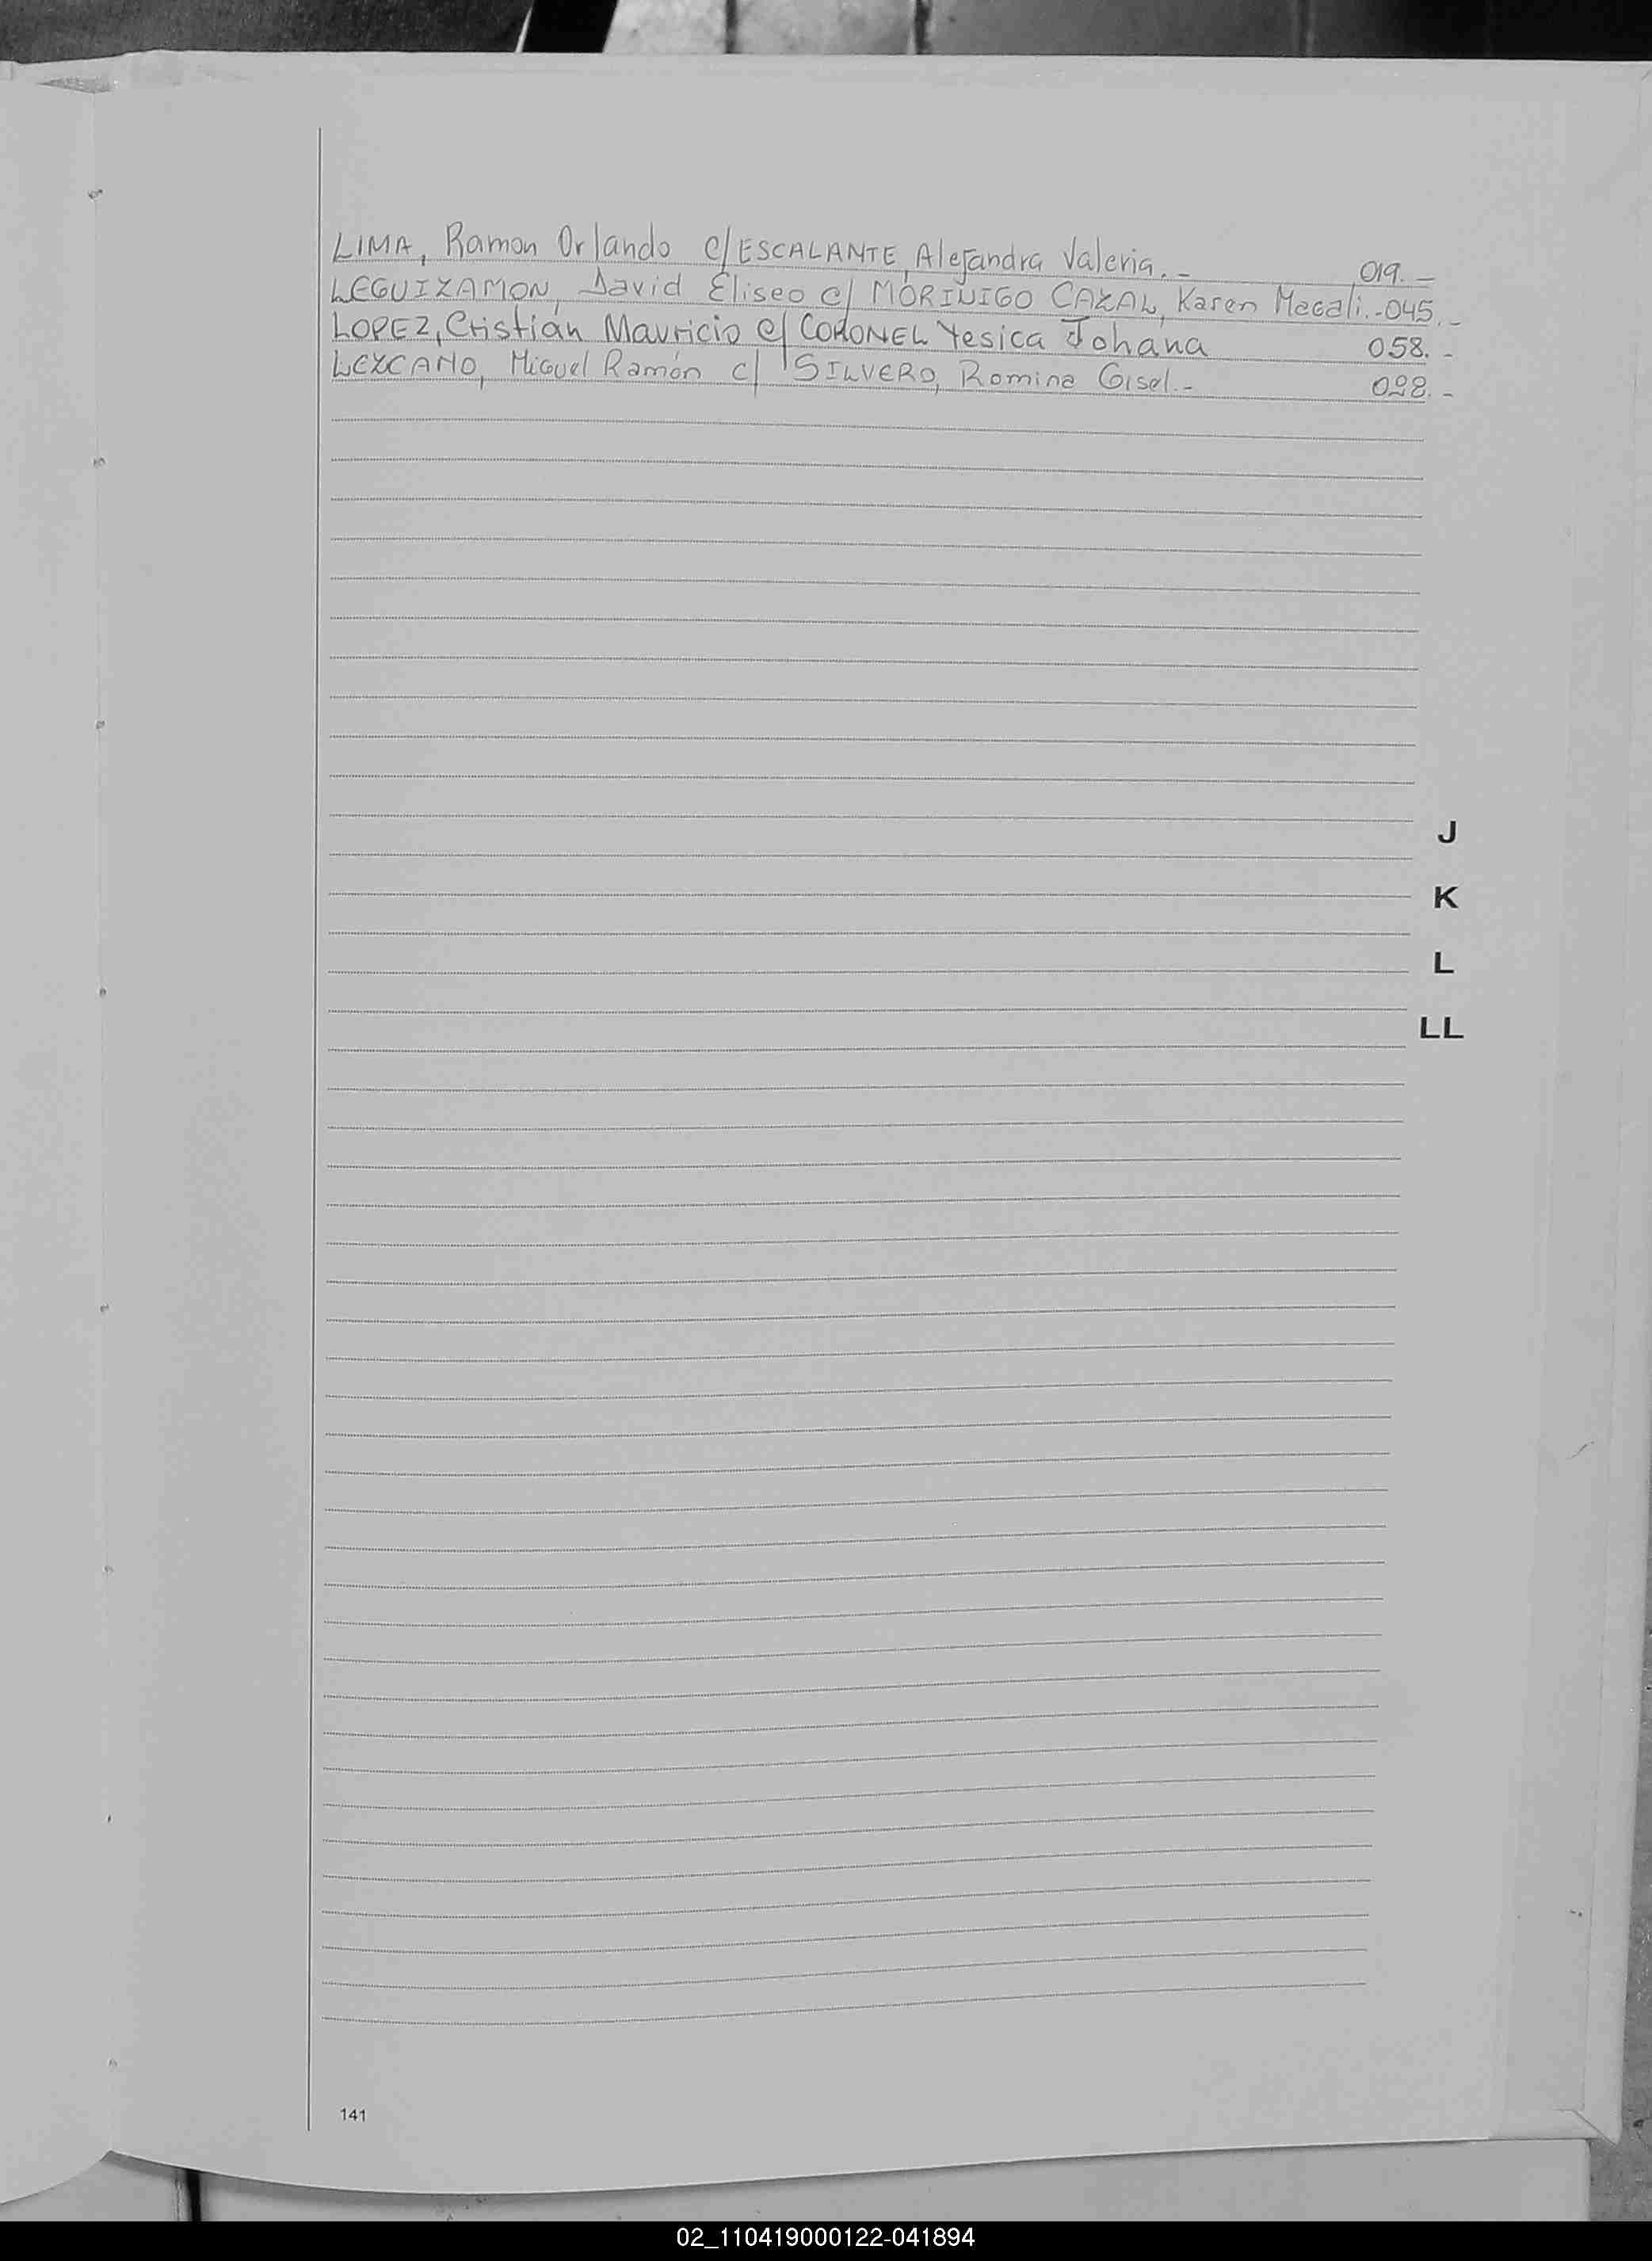 LIMA, Ramon Orlando c/ ESCALANTE, Alejandra Valeria.- 019.-
LEGUIZAMON, David Eliseo c/ MORINIGO CAZAL, Karen Magali.-045.-
LOPEZ, Cristián Mauricio c/ CORONEL Yesica Johana 058.-
LEZCANO, Miguel Ramón c/ SILVERO, Romina Gisel.- 098.-
J
K
L
LL
141
02_110419000122-041894